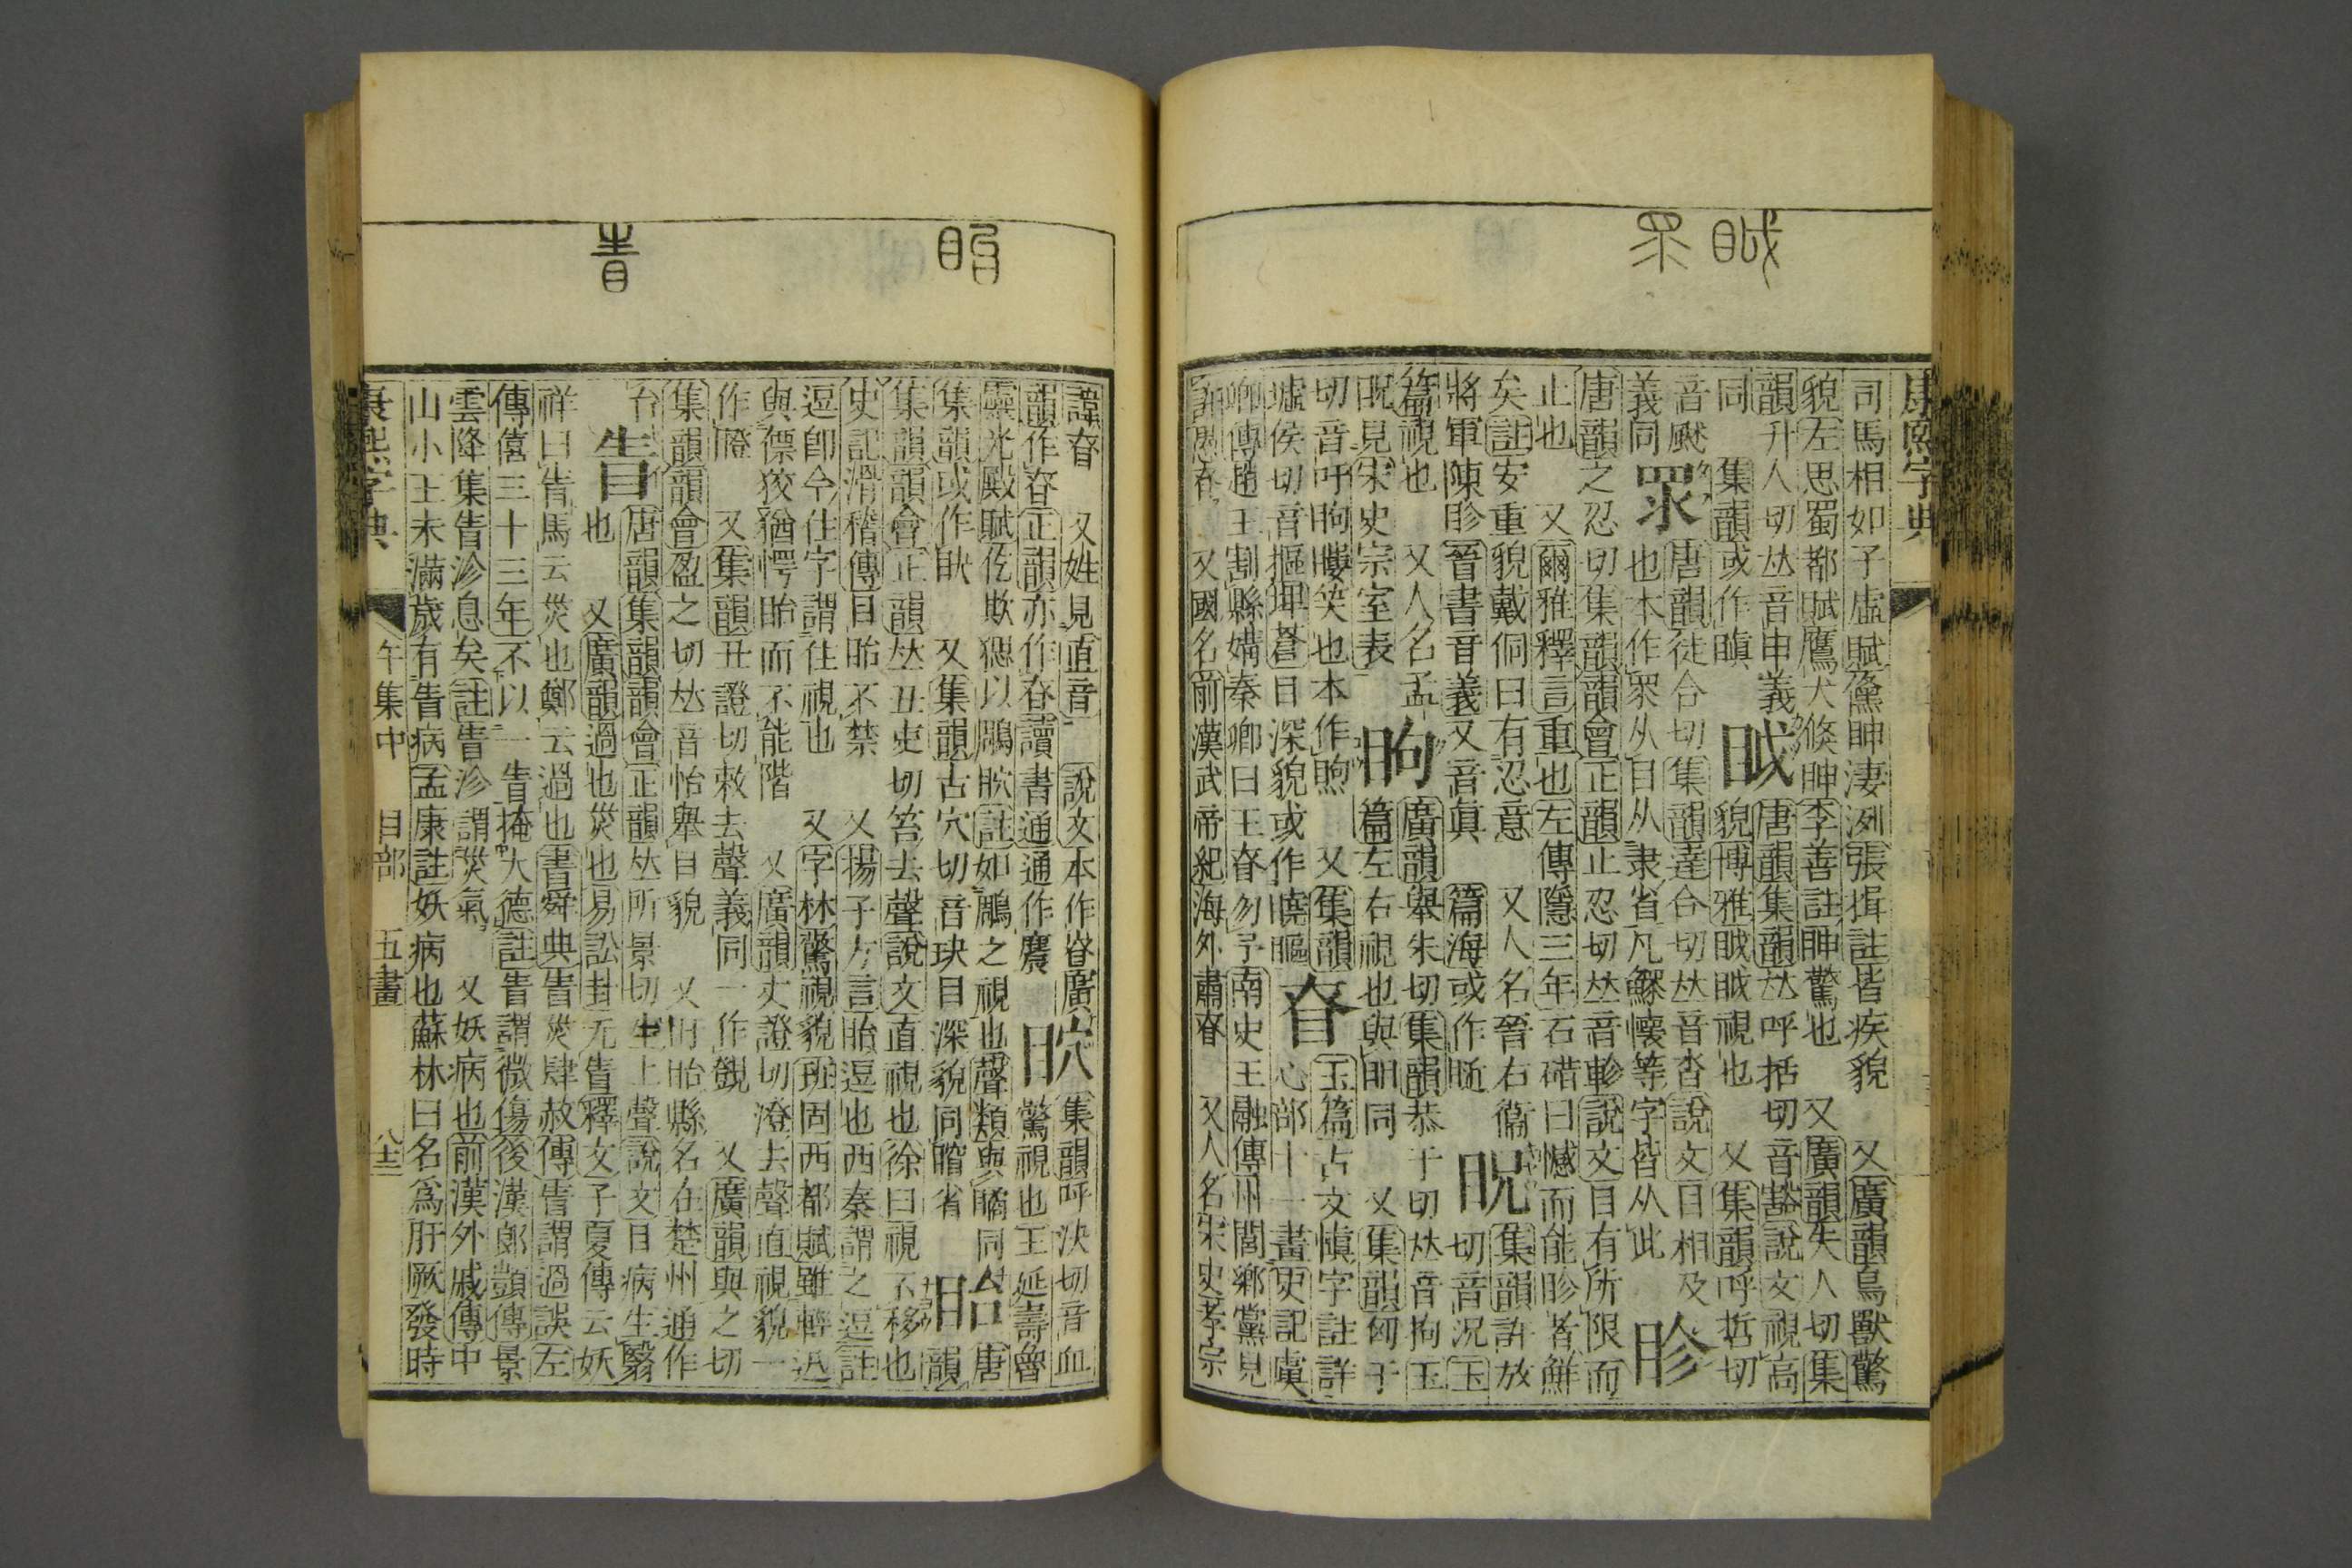 康熙字典
眓
眔
司馬相如子虛賦儵眒淒浰張揖註皆疾貌 又廣韻鳥獸驚
貌左思蜀都賦鷹犬倏眒李善註眒驚也 又廣韻失人切集
韻升人切𠀤音申義
同 集韻或作瞋
眓
唐韻集韻𠀤呼括切音豁說文視高
貌博雅眓眓視也 又集韻呼哲切
音
義同
眔
唐韻徒合切集韻達合切𠀤音沓說文目相及
也本作眔从目从隶省凡鰥懷等字皆从此
眕
唐韻之忍切集韻韻會正韻止忍切𠀤音軫說文目有所限而
止也 又爾雅釋言重也左傳隱三年石碏曰憾而能眕者鮮
矣註安重貌戴侗曰有忍意 又人名晉右衞
將軍陳眕晉書音義又音眞 篇海或作
眖
集韻許放
切音況玉
篇視也 又人名孟
眖見宋史宗室表
眗
廣韻舉朱切集韻恭于切𠀤音拘玉
篇左右視也與䀠同 又集韻匈于
切音吁眗瞜笑也本作煦 又集韻
墟侯切音摳埤蒼目深貌或作瞘
眘
玉篇古文愼字註詳
心部十一畫史記虞
卿傳趙王割縣媾秦卿曰王眘勿予南史王融傳州閭鄉黨見
許愚眘 又國名前漢武帝紀海外肅眘 又人名宋史孝宗
眙
眚
諱眘 又姓見直音 說文本作昚廣
韻作眘正韻亦作眘讀書通通作䴢
䀏
集韻呼決切音血
驚視也王延壽魯
靈光殿賦仡欺以鵰䀏註如鵰之視也聲類與矞同
集韻或作䀗 又集韻古穴切音玦目深貌同省
眙
唐
韻
集韻韻會正韻𠀤丑吏切笞去聲說文直視也徐曰視不移也
史記滑稽傳目眙不禁 又揚子方言眙逗也西秦謂之逗註
逗卽今住字謂住視也 又字林驚視貌班固西都賦雖輕迅
與僄狡猶愕眙而不能階 又廣韻丈證切澄去聲直視貌一
作瞪 又集韻丑證切敕去聲義同一作覴 又廣韻與之切
集韻韻會盈之切𠀤音怡舉目貌 又盱眙縣名在楚州通作
台
眚
唐韻集韻韻會正韻𠀤所景切生上聲說文目病生翳
也 又廣韻過也災也易訟卦无眚釋文子夏傳云妖
祥曰眚馬云災也鄭云過也書舜典眚災肆赦傳眚謂過誤左
傳僖三十三年不以一眚掩大德註眚謂微傷後漢郞顗傳景
雲降集眚沴息矣註眚沴謂災氣 又妖病也前漢外戚傳中
山小王未滿歲有眚病孟康註妖病也蘇林曰名爲肝厥發時
康熙字典 午集中 目部 五畫